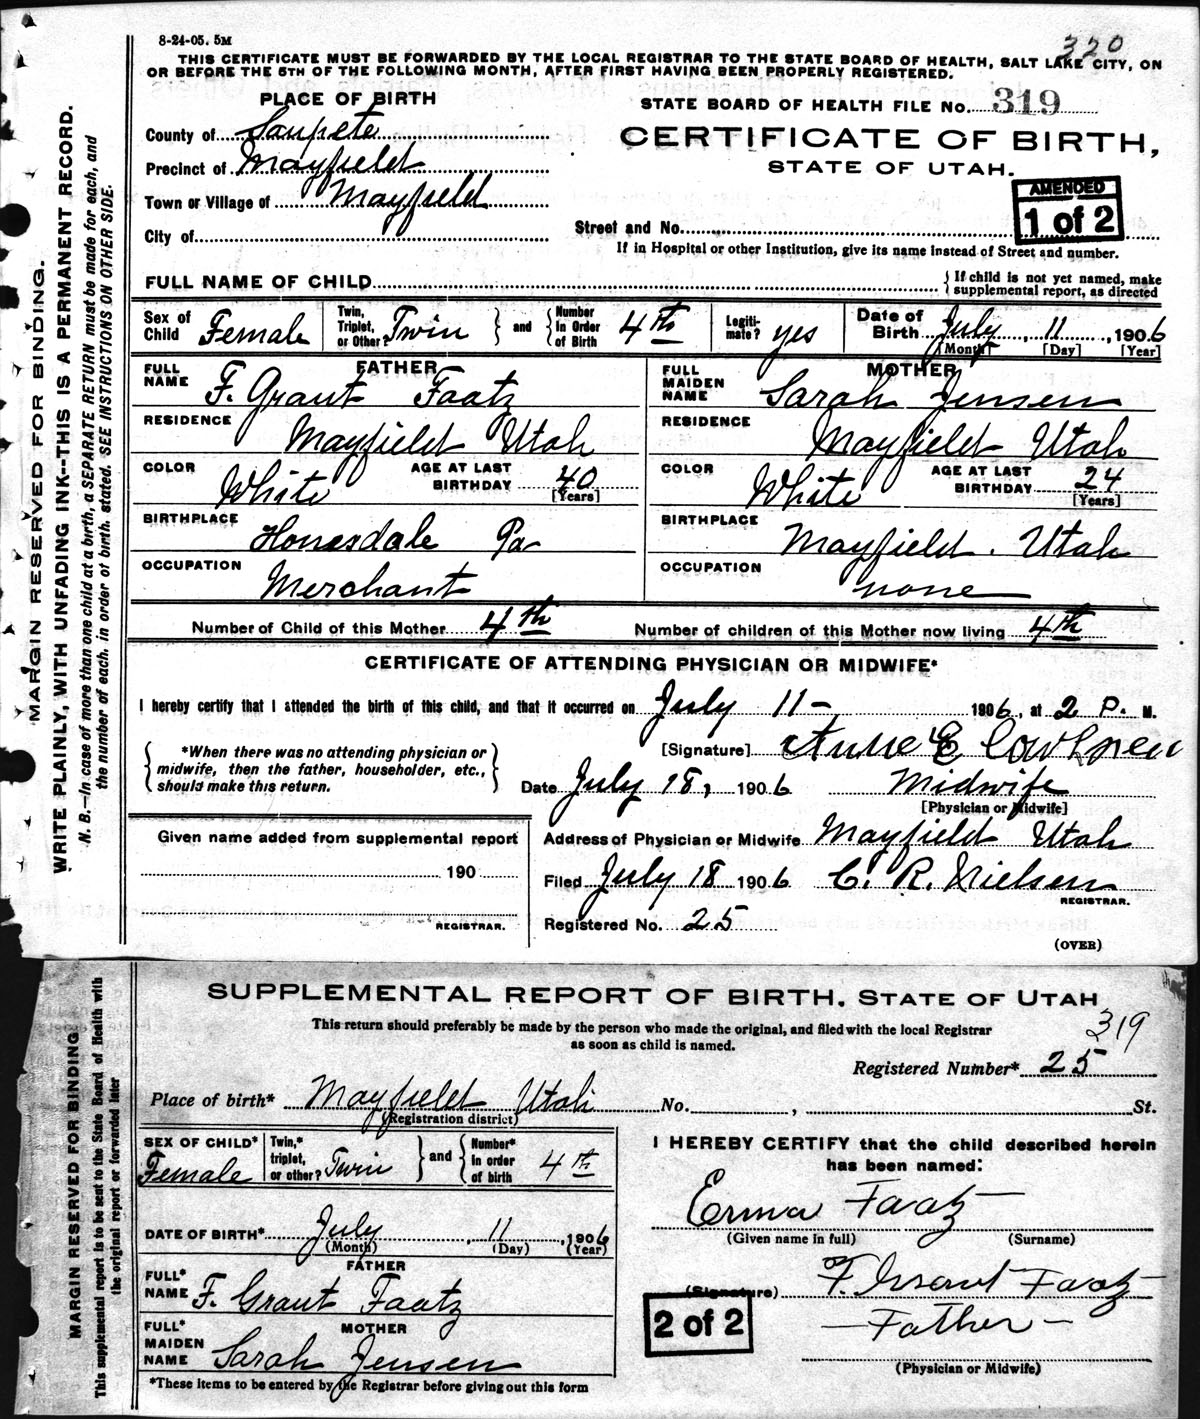 8-24-05. 5M
320
THIS CERTIFICATE MUST BE FORWARDED BY THE LOCAL REGISTRAR TO THE STATE BOARD OF HEALTH, SALT LAKE CITY, ON
OR BEFORE THE 5TH OF THE FOLLOWING MONTH, AFTER FIRST HAVING BEEN PROPERLY REGISTERED.
PLACE OF BIRTH
STATE BOARD OF HEALTH FILE No. 319
County of Sanpete
CERTIFICATE OF BIRTH,
Precinct of Mayfield
STATE OF UTAH.
Town or Village of Mayfield
AMENDED
1 of 2
City of
Street and No.
If in Hospital or other Institution, give its name instead of Street and number.
FULL NAME OF CHILD
{ If child is not yet named, make
supplemental report, as directed
Sex of Child Female
Twin, Triplet, or Other? Twin } and { Number In Order of Birth 4th
Legiti-mate? yes
Date of Birth July 11, 1906
[Month] [Day] [Year]
FATHER
FULL NAME F. Grant Faatz
MOTHER
FULL MAIDEN NAME Sarah Jensen
RESIDENCE Mayfield Utah
RESIDENCE Mayfield Utah
COLOR White AGE AT LAST BIRTHDAY 40 [Years]
COLOR White AGE AT LAST BIRTHDAY 24 [Years]
BIRTHPLACE Honesdale Pa
BIRTHPLACE Mayfield. Utah
OCCUPATION Merchant
OCCUPATION none
Number of Child of this Mother 4th Number of children of this Mother now living 4th
CERTIFICATE OF ATTENDING PHYSICIAN OR MIDWIFE*
I hereby certify that I attended the birth of this child, and that it occurred on July 11- 1906, at 2 P. M.
{ *When there was no attending physician or
midwife, then the father, householder, etc.,
should make this return. }
[Signature]
Date July 18, 1906 Midwife
[Physician or Midwife]
Given name added from supplemental report
190
REGISTRAR.
Address of Physician or Midwife Mayfield Utah
Filed July 18 1906 C. R. Nielsen
REGISTRAR.
Registered No. 25
(OVER)
MARGIN RESERVED FOR BINDING.
WRITE PLAINLY, WITH UNFADING INK--THIS IS A PERMANENT RECORD.
N. B.—In case of more than one child at a birth, a SEPARATE RETURN must be made for each, and
the number of each, in order of birth, stated. SEE INSTRUCTIONS ON OTHER SIDE.
SUPPLEMENTAL REPORT OF BIRTH, STATE OF UTAH
This return should preferably be made by the person who made the original, and filed with the local Registrar
as soon as child is named.
319
Registered Number* 25
Place of birth* Mayfield Utah No. , St.
(Registration district)
SEX OF CHILD* Female
Twin,* triplet, or other? Twin } and { Number* In order of birth 4th
I HEREBY CERTIFY that the child described herein
has been named:
Erma Faatz
(Given name in full) (Surname)
DATE OF BIRTH* July 11, 1906
(Month) (Day) (Year)
FATHER
FULL* NAME F. Grant Faatz
(Signature) F. Grant Faatz
2 of 2
Father
(Physician or Midwife)
MOTHER
FULL* MAIDEN NAME Sarah Jensen
*These items to be entered by the Registrar before giving out this form
MARGIN RESERVED FOR BINDING
This supplemental report is to be sent to the State Board of Health with
the original report or forwarded later